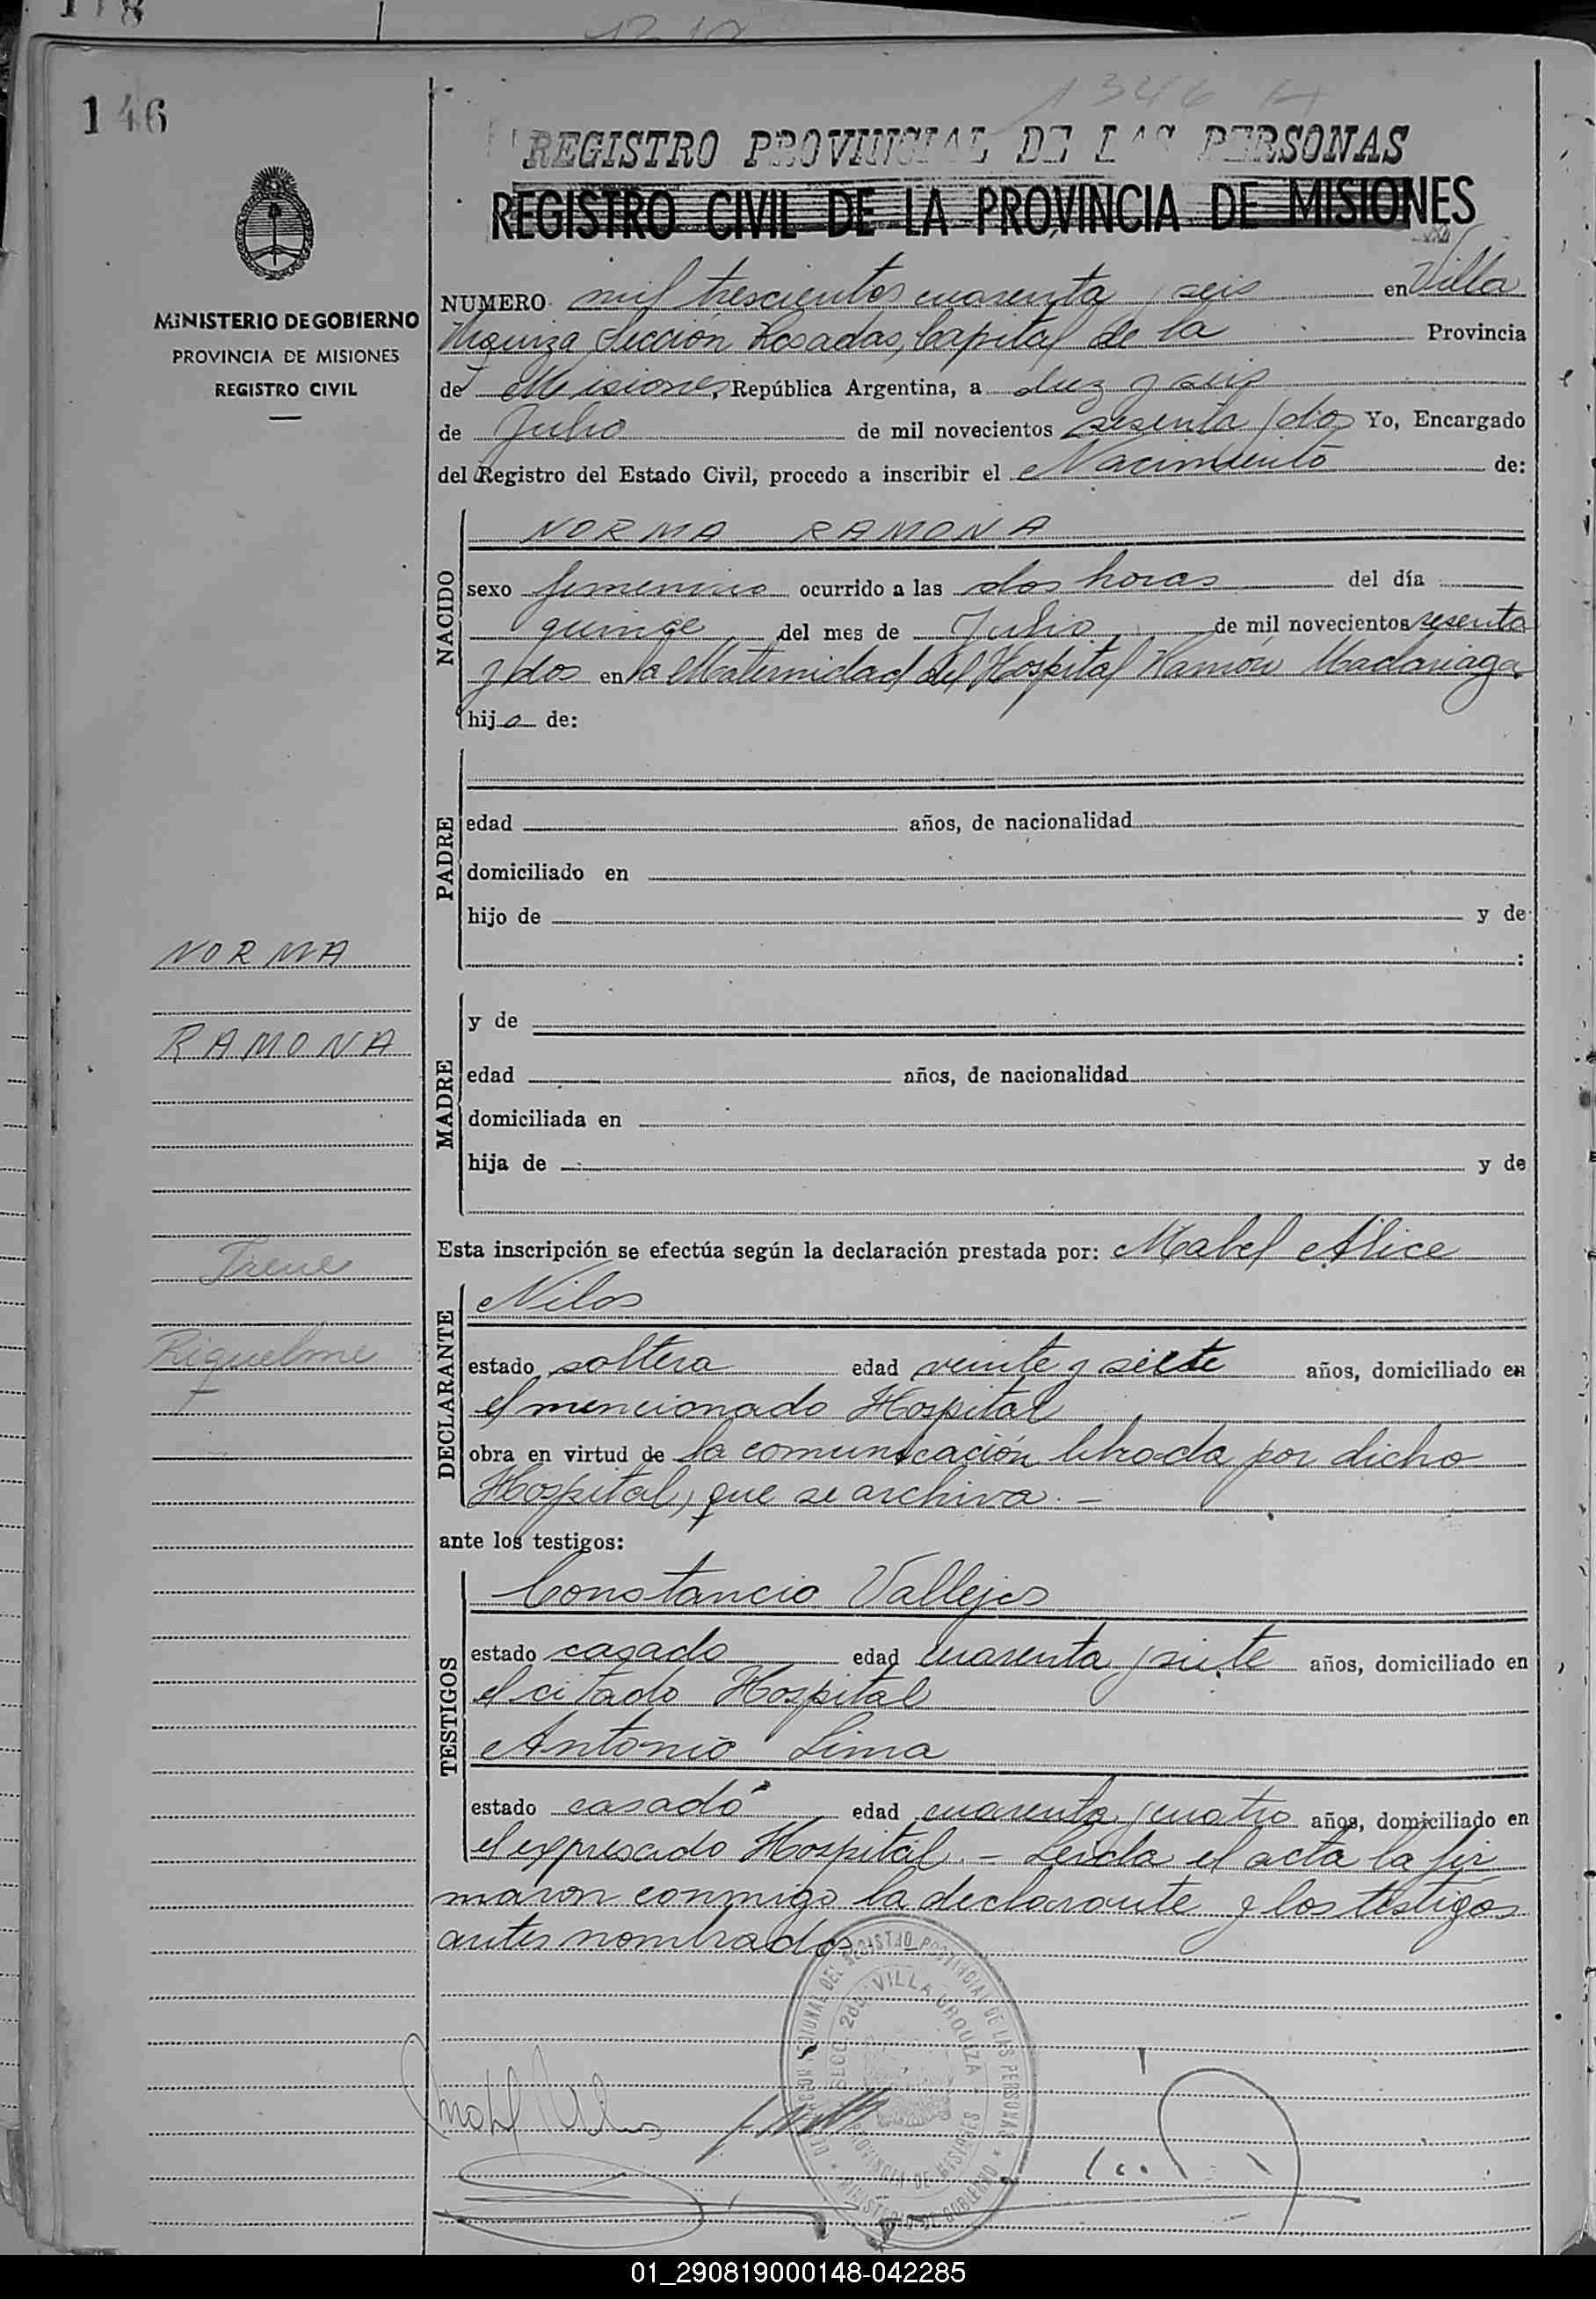 146
1346 A
REGISTRO PROVINCIAL DE LAS PERSONAS
REGISTRO CIVIL DE LA PROVINCIA DE MISIONES
MINISTERIO DE GOBIERNO
PROVINCIA DE MISIONES
REGISTRO CIVIL
NUMERO mil trescientos cuarenta y seis en Villa
Urquiza Sección Posadas, Capital de la Provincia
de Misiones, República Argentina, a diez y seis
de Julio de mil novecientos sesenta y dos Yo, Encargado
del Registro del Estado Civil, procedo a inscribir el Nacimiento de:
NACIDO
NORMA RAMONA
sexo femenino ocurrido a las dos horas del día
quince del mes de Julio de mil novecientos sesenta
y dos en la Maternidad del Hospital Ramón Madariaga
hija de:
PADRE
edad años, de nacionalidad
domiciliado en
hijo de y de
:
NORMA
RAMONA
MADRE
y de
edad años, de nacionalidad
domiciliada en
hija de y de
Irene
Riquelme
Esta inscripción se efectúa según la declaración prestada por: Mabel Alice
DECLARANTE
Nilos
estado soltera edad veinte y siete años, domiciliado en
el mencionado Hospital
obra en virtud de la comunicación librada por dicho
Hospital, que se archiva. -
ante los testigos:
TESTIGOS
Constancio Vallejos
estado casado edad cuarenta y siete años, domiciliado en
el citado Hospital
Antonio Lima
estado casado edad cuarenta y cuatro años, domiciliado en
el expresado Hospital. - Leída el acta la fir
maron conmigo la declarante y los testigos
antes nombrados
REGISTRO PROVINCIAL DE LAS PERSONAS
SECC. 2da. VILLA URQUIZA
PROVINCIA DE MISIONES
MINISTERIO DE GOBIERNO
01_290819000148-042285